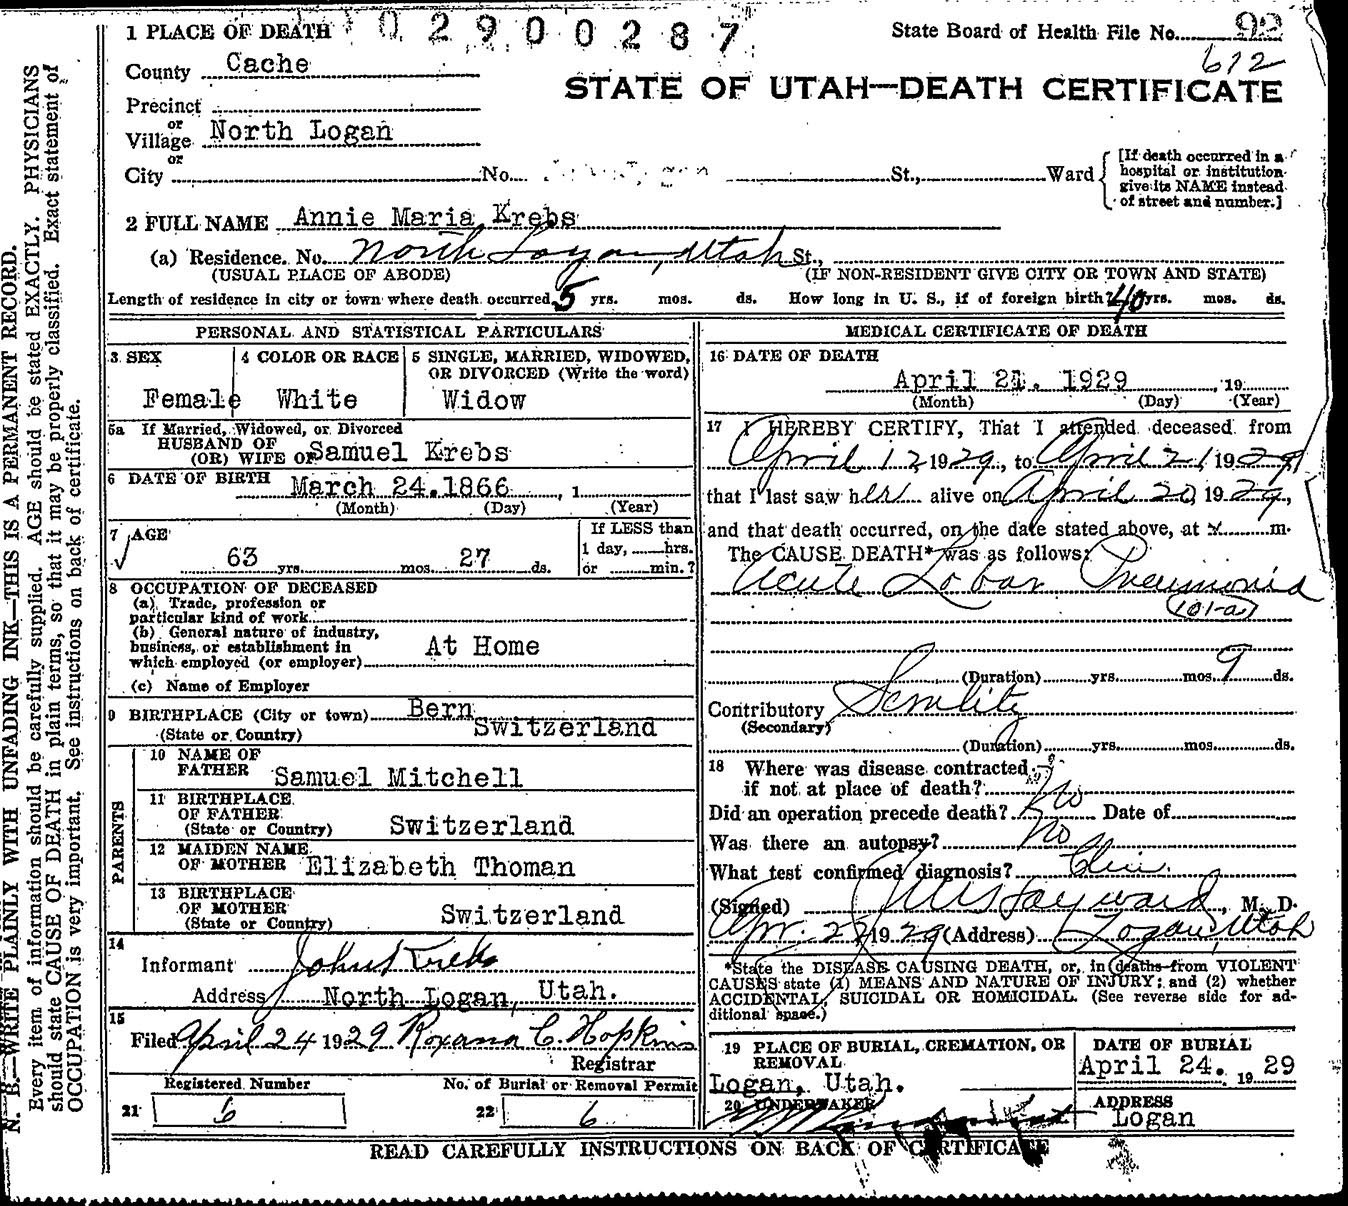 02900287
State Board of Health File No. 92
612
STATE OF UTAH—DEATH CERTIFICATE
1 PLACE OF DEATH
County Cache
Precinct
or
Village North Logan
or
City No. St., Ward
[If death occurred in a hospital or institution give its NAME instead of street and number.]
2 FULL NAME Annie Maria Krebs
(a) Residence. No. North Logan, Utah St.,
(USUAL PLACE OF ABODE) (IF NON-RESIDENT GIVE CITY OR TOWN AND STATE)
Length of residence in city or town where death occurred 5 yrs. mos. ds. How long in U. S., if of foreign birth? 40 yrs. mos. ds.
PERSONAL AND STATISTICAL PARTICULARS
3 SEX 4 COLOR OR RACE 5 SINGLE, MARRIED, WIDOWED,
OR DIVORCED (Write the word)
Female White Widow
5a If Married, Widowed, or Divorced
HUSBAND OF
(OR) WIFE OF Samuel Krebs
6 DATE OF BIRTH March 24.1866, 1
(Month) (Day) (Year)
7 AGE
63 yrs. mos. 27 ds.
If LESS than
1 day, hrs.
or min.?
8 OCCUPATION OF DECEASED
(a) Trade, profession or
particular kind of work
(b) General nature of industry,
business, or establishment in
which employed (or employer)
At Home
(c) Name of Employer
9 BIRTHPLACE (City or town) Bern
(State or Country) Switzerland
PARENTS
10 NAME OF
FATHER Samuel Mitchell
11 BIRTHPLACE
OF FATHER
(State or Country) Switzerland
12 MAIDEN NAME
OF MOTHER Elizabeth Thoman
13 BIRTHPLACE
OF MOTHER
(State or Country) Switzerland
14
Informant John Krebs
Address North Logan, Utah.
15
Filed April 24 1929 Roxana C. Hopkins
Registrar
Registered Number No. of Burial or Removal Permit
21 6 22 6
MEDICAL CERTIFICATE OF DEATH
16 DATE OF DEATH
April 21. 1929, 19
(Month) (Day) (Year)
17 I HEREBY CERTIFY, That I attended deceased from
April 12 1929, to April 21, 1929
that I last saw her alive on April 20, 1929,
and that death occurred, on the date stated above, at m.
The CAUSE DEATH* was as follows:
Acute Lobar Pneumonia
(101-a)
(Duration) yrs. mos. 9 ds.
Contributory Senility
(Secondary)
(Duration) yrs. mos. ds.
18 Where was disease contracted
if not at place of death?
Did an operation precede death? No Date of
Was there an autopsy? No
What test confirmed diagnosis? Clin.
(Signed) Hayward, M. D.
Apr. 1929 (Address) Logan, Utah
*State the DISEASE CAUSING DEATH, or, in deaths from VIOLENT
CAUSES state (1) MEANS AND NATURE OF INJURY; and (2) whether
ACCIDENTAL, SUICIDAL OR HOMICIDAL. (See reverse side for ad-
ditional space.)
19 PLACE OF BURIAL, CREMATION, OR
REMOVAL
Logan, Utah.
DATE OF BURIAL
April 24. 19 29
20 UNDERTAKER
ADDRESS
Logan
READ CAREFULLY INSTRUCTIONS ON BACK OF CERTIFICATE
N. B.—WRITE PLAINLY WITH UNFADING INK—THIS IS A PERMANENT RECORD.
Every item of information should be carefully supplied. AGE should be stated EXACTLY. PHYSICIANS
should state CAUSE OF DEATH in plain terms, so that it may be properly classified. Exact statement of
OCCUPATION is very important. See instructions on back of certificate.